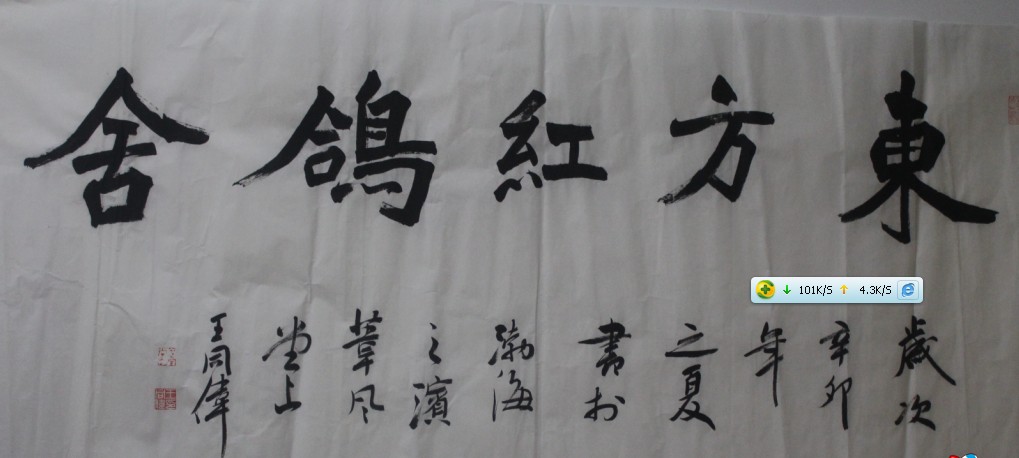 東方紅鴿舍
歲次
辛卯
年
之夏
書於
渤海
之濱
葦风
堂上
王同偉
101K/S 4.3K/S